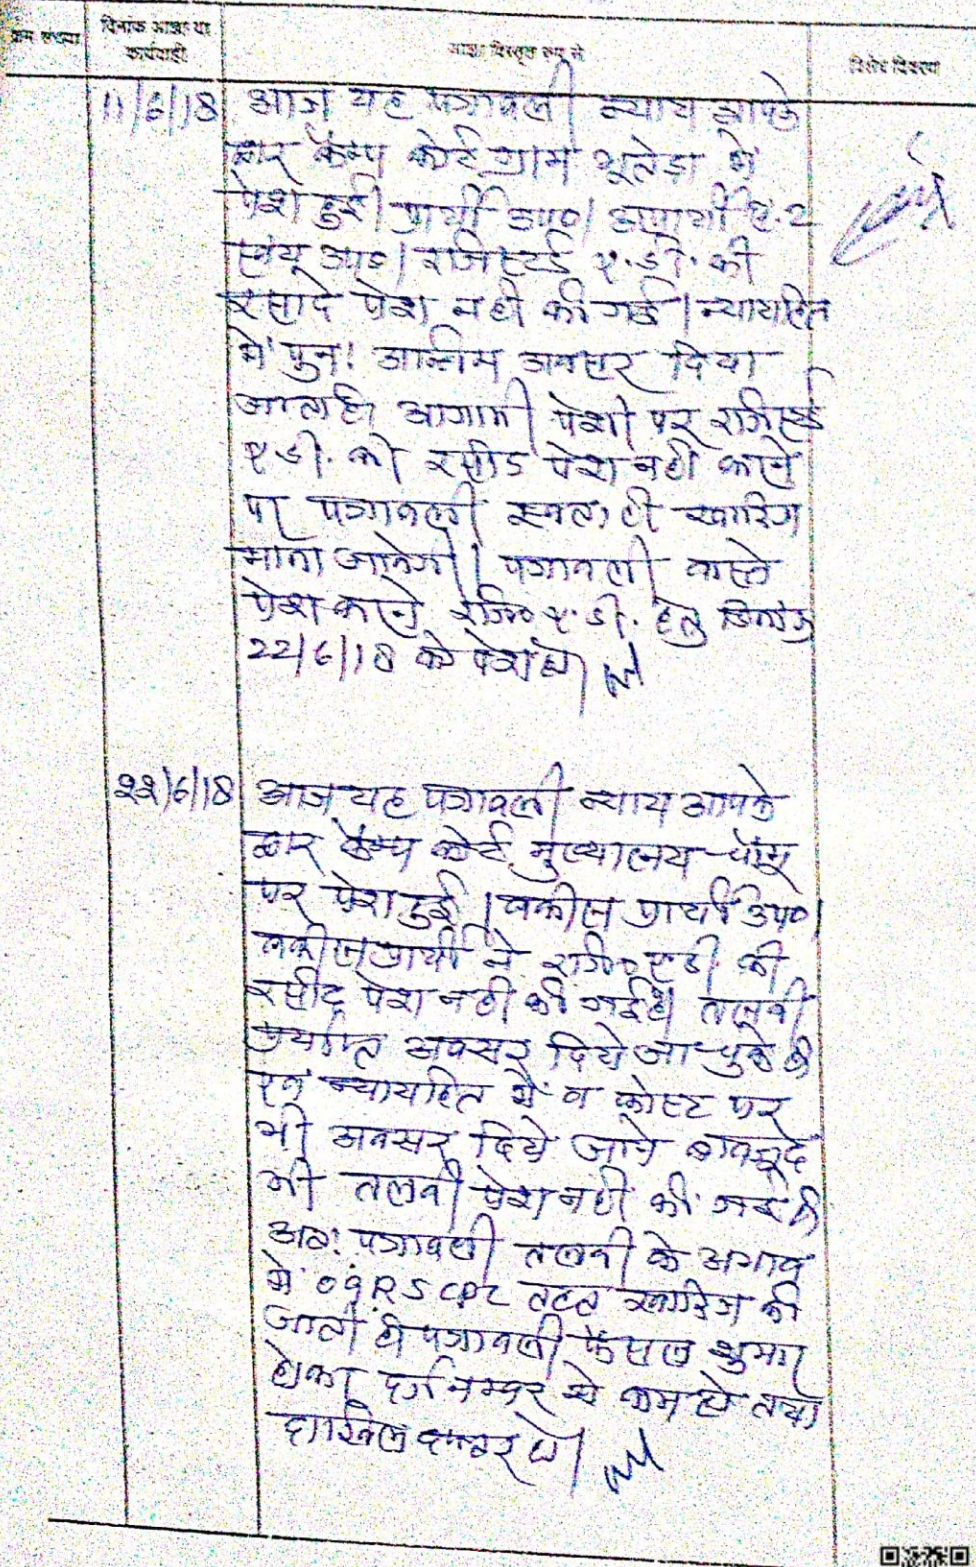 क्रम संख्या
दिनांक आज्ञा या कार्यवाही
आज्ञा विस्तृत रूप से
विशेष विवरण
11/6/18 आज यह पत्रावली न्याय आपके
द्वार कैम्प कोर्ट ग्राम भूतेडा मे
पेश हुई। प्रार्थी उप०। अप्रार्थी सं.2
स्वंय उप०। रजिस्टर्ड ए.डी. की
रसीदे पेश नही की गई। न्यायहित
मे पुन: अन्तिम अवसर दिया
जाता है। आगामी पेशी पर रजिस्टर्ड
ए.डी. की रसीद पेश नही करने
पर पत्रावली स्वत: ही खारिज
माना जावेगा। पत्रावली वास्ते
पेश करने रजि० ए.डी. हेतु दिनांक
22/6/18 को पेश हो।
22/6/18 आज यह पत्रावली न्याय आपके
द्वार कैम्प कोर्ट मुख्यालय चौमू
पर पेश हुई। वकील प्रार्थी उप०।
वकील प्रार्थी ने रजि० एडी की
रसीद पेश नही की गई है। तलबी
पर्याप्त अवसर दिये जा चुके है
एवं न्यायहित मे व कोस्ट पर
भी अवसर दिये जाने बावजूद
भी तलबी पेश नही की गई है
अत: पत्रावली तलबी के अभाव
मे O9R5 CPC तहत खारिज की
जाती है। पत्रावली फैसल शुमार
होकर दर्ज नम्बर से कम हो तथा
दाखिल दफ्तर हो।